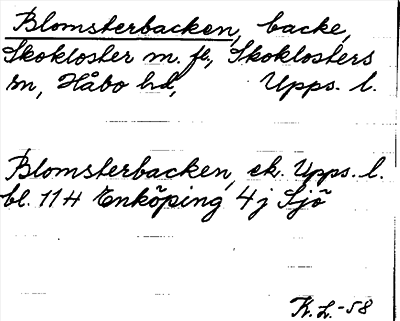 Blomsterbacken, backe,
Skokloster m. fl., Skoklosters
sn, Håbo hd, Upps. l.
Blomsterbacken, ek. Upps. l.
bl. 11 H Enköping 4 j Sjö
K. L. -58